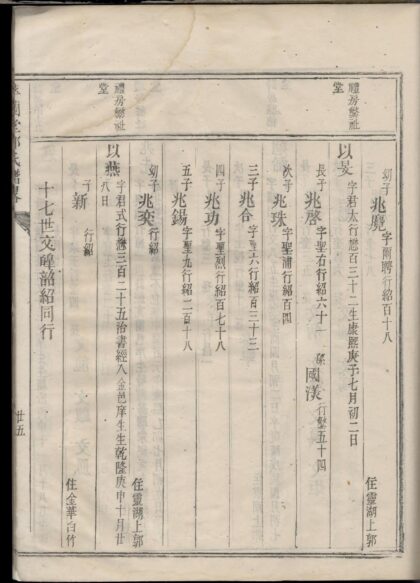 幼子 兆麃 字爾聘行紹百十八
住靈湖上郭
禮房縣社堂
以旻 字君太行懋百三十二生康熙庚子七月初二日
長子 兆啓 字聖右行紹六十一 孫 國漢 行繁五十四
次子 兆珠 字聖浦行紹百四
三子 兆合 字聖六行紹百三十三
四子 兆功 字聖烈行紹百七十八
五子 兆錫 字聖九行紹二百十八
幼子 兆奕 行紹
住靈湖上郭
禮房縣社堂
以燕 字君式行懋三百二十五治書經入金邑庠生生乾隆庚申十月廿
八日
子 新 行紹
住金華白竹
十七世文 韶紹同行
郭氏譜
廿五